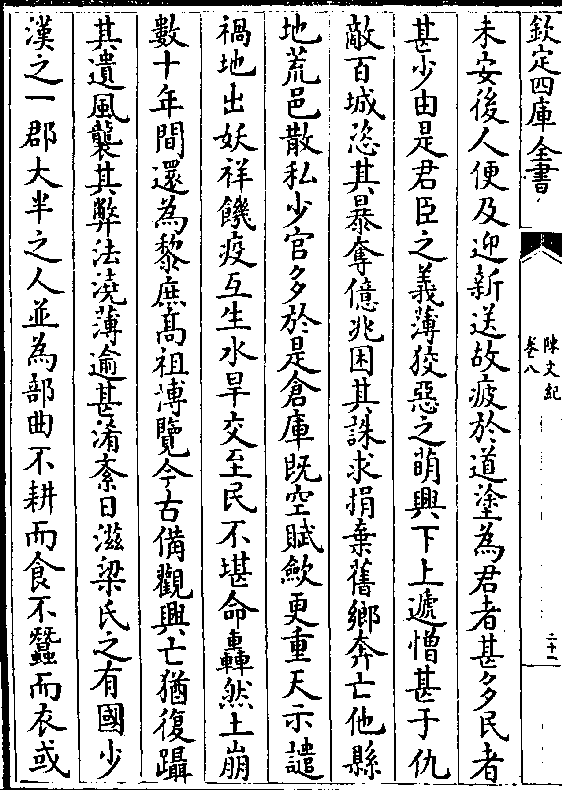 欽定四庫全書
陳文紀
卷八
二十一
未安後人便及迎新送故疲於道塗為君者甚多民者
甚少由是君臣之義薄狡惡之萌興下上遞憎甚于仇
敵百城恣其暴奪億兆困其誅求捐棄舊鄉奔亡他縣
地荒邑散私少官多於是倉庫既空賦歛更重天示譴
禍地出妖祥饑疫互生水旱交至民不堪命轟然土崩
數十年間還為黎庶髙祖博覽今古備觀興亡猶復躡
其遺風襲其弊法澆薄逾甚淆紊日滋梁氏之有國少
漢之一郡大半之人並為部曲不耕而食不蠶而衣或